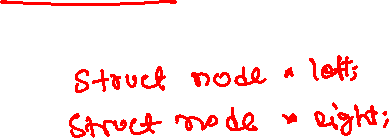 Struct node * left;
Struct node * right;